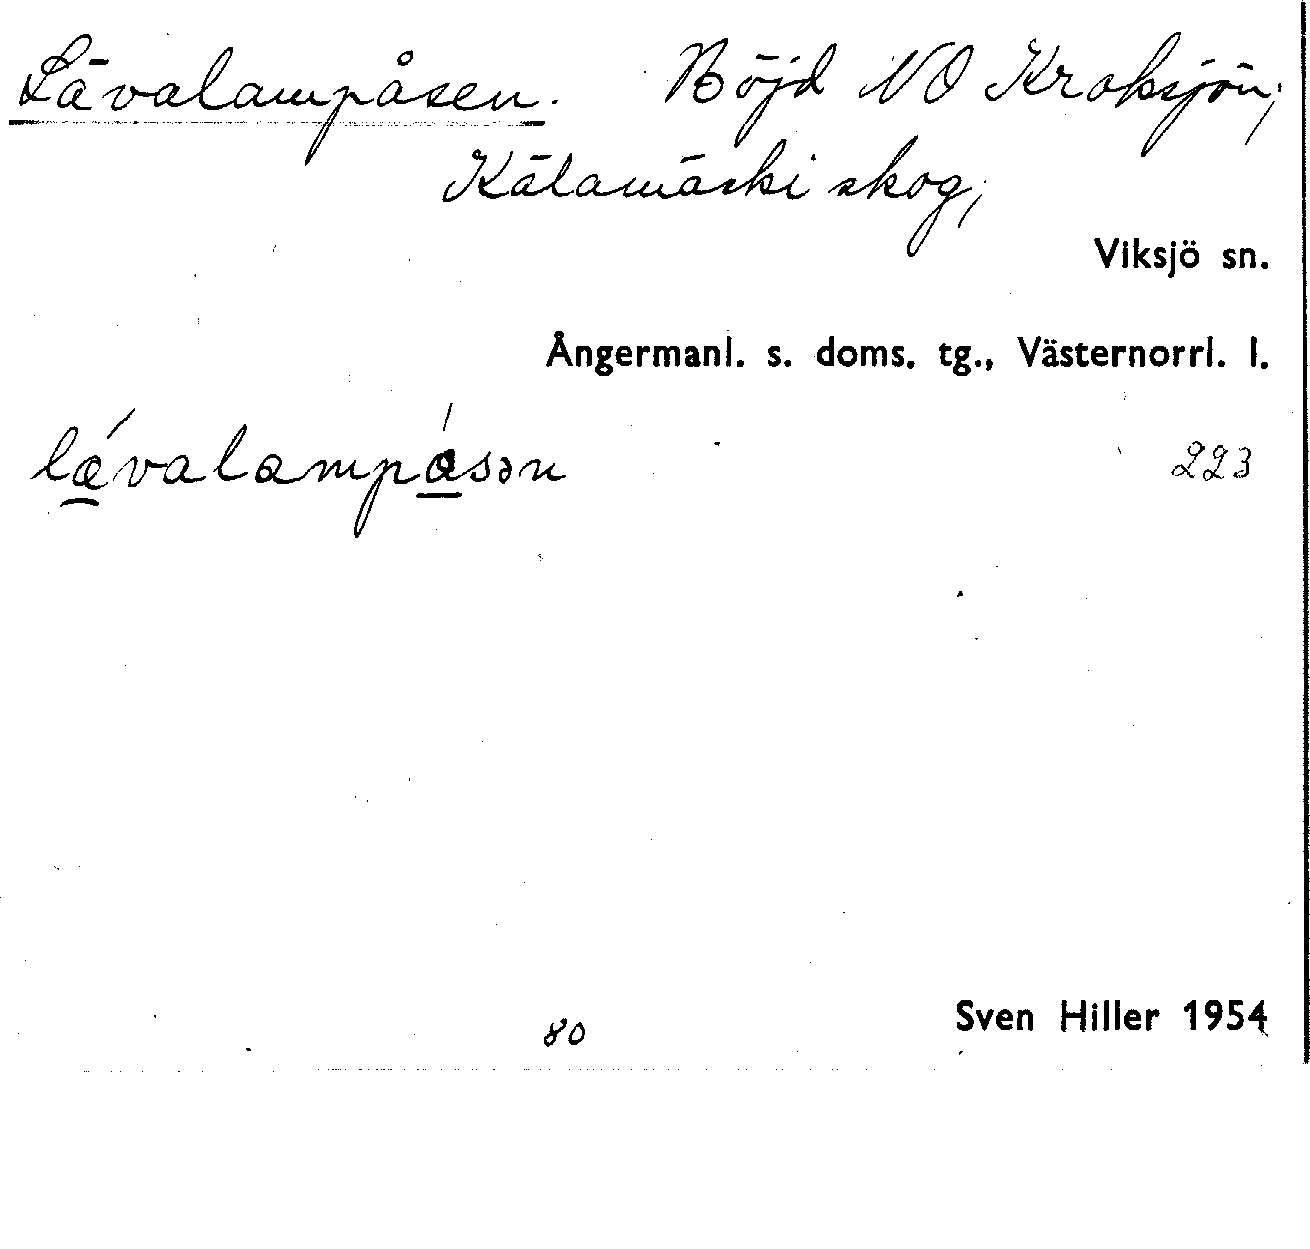 Lävalampåsen. Böjd NO Kroksjön,
Kälamärki skog,
Viksjö sn.
Ångermanl. s. doms. tg., Västernorrl. l.
lǽvalampåsən 223
80 Sven Hiller 1954